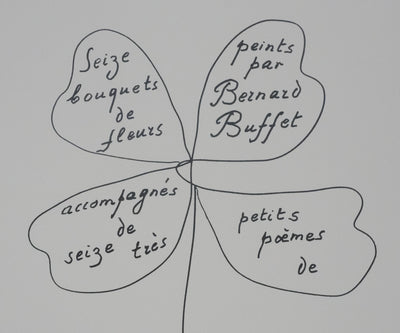 Seize
bouquets
de
fleurs
peints
par
Bernard
Buffet
accompagnés
de
seize très
petits
poèmes
de